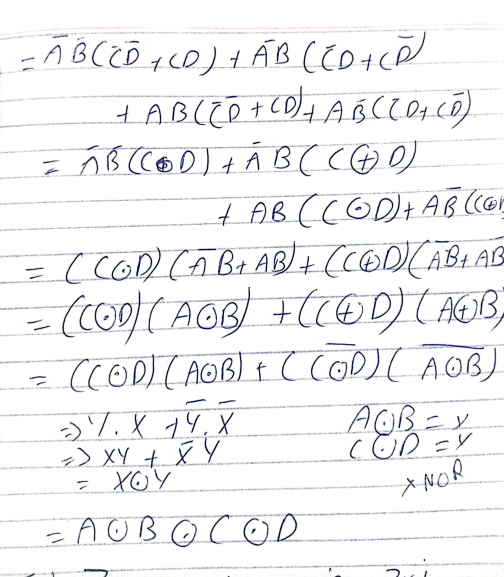 = A̅B̅(C̅D̅ + CD) + A̅B(C̅D + CD̅)
+ AB(C̅D̅ + CD) + AB̅(C̅D + CD̅)
= A̅B̅(C⊙D) + A̅B(C⊕D)
+ AB(C⊙D) + AB̅(C⊕
= (C⊙D)(A̅B̅ + AB) + (C⊕D)(A̅B + AB̅
= (C⊙D)(A⊙B) + (C⊕D)(A⊕B)
= (C⊙D)(A⊙B) + (C̅⊙̅D̅)(A̅⊙̅B̅)
⇒ Y.X + Y̅.X̅ A⊙B = X
⇒ XY + X̅Y̅ C⊙D = Y
= X⊙Y XNOR
= A⊙B⊙C⊙D